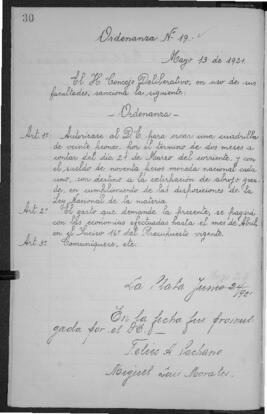 30
Ordenanza Nº 19.
Mayo 13 de 1921.
El H. Concejo Deliberativo, en uso de sus
facultades, sanciona la siguiente:
—Ordenanza—
Art. 1º Autorízase al D.E. para crear una cuadrilla
de veinte peones, por el término de dos meses a
contar del día 2 de Marzo del corriente, y con
el sueldo de noventa pesos moneda nacional cada
uno, con destino a la extirpación de abrojo gran
de, en cumplimiento de las disposiciones de la
Ley Nacional de la materia.
Art. 2º El gasto que demande la presente, se pagará
con las economías efectuadas hasta el mes de Abril
en el Inciso 1º del Presupuesto vigente.
Art. 3º Comuníquese, etc.
La Plata Junio 2/
En la fecha fue promul
gada por el D.E.
A. Pachano
Miguel Luis Morales.